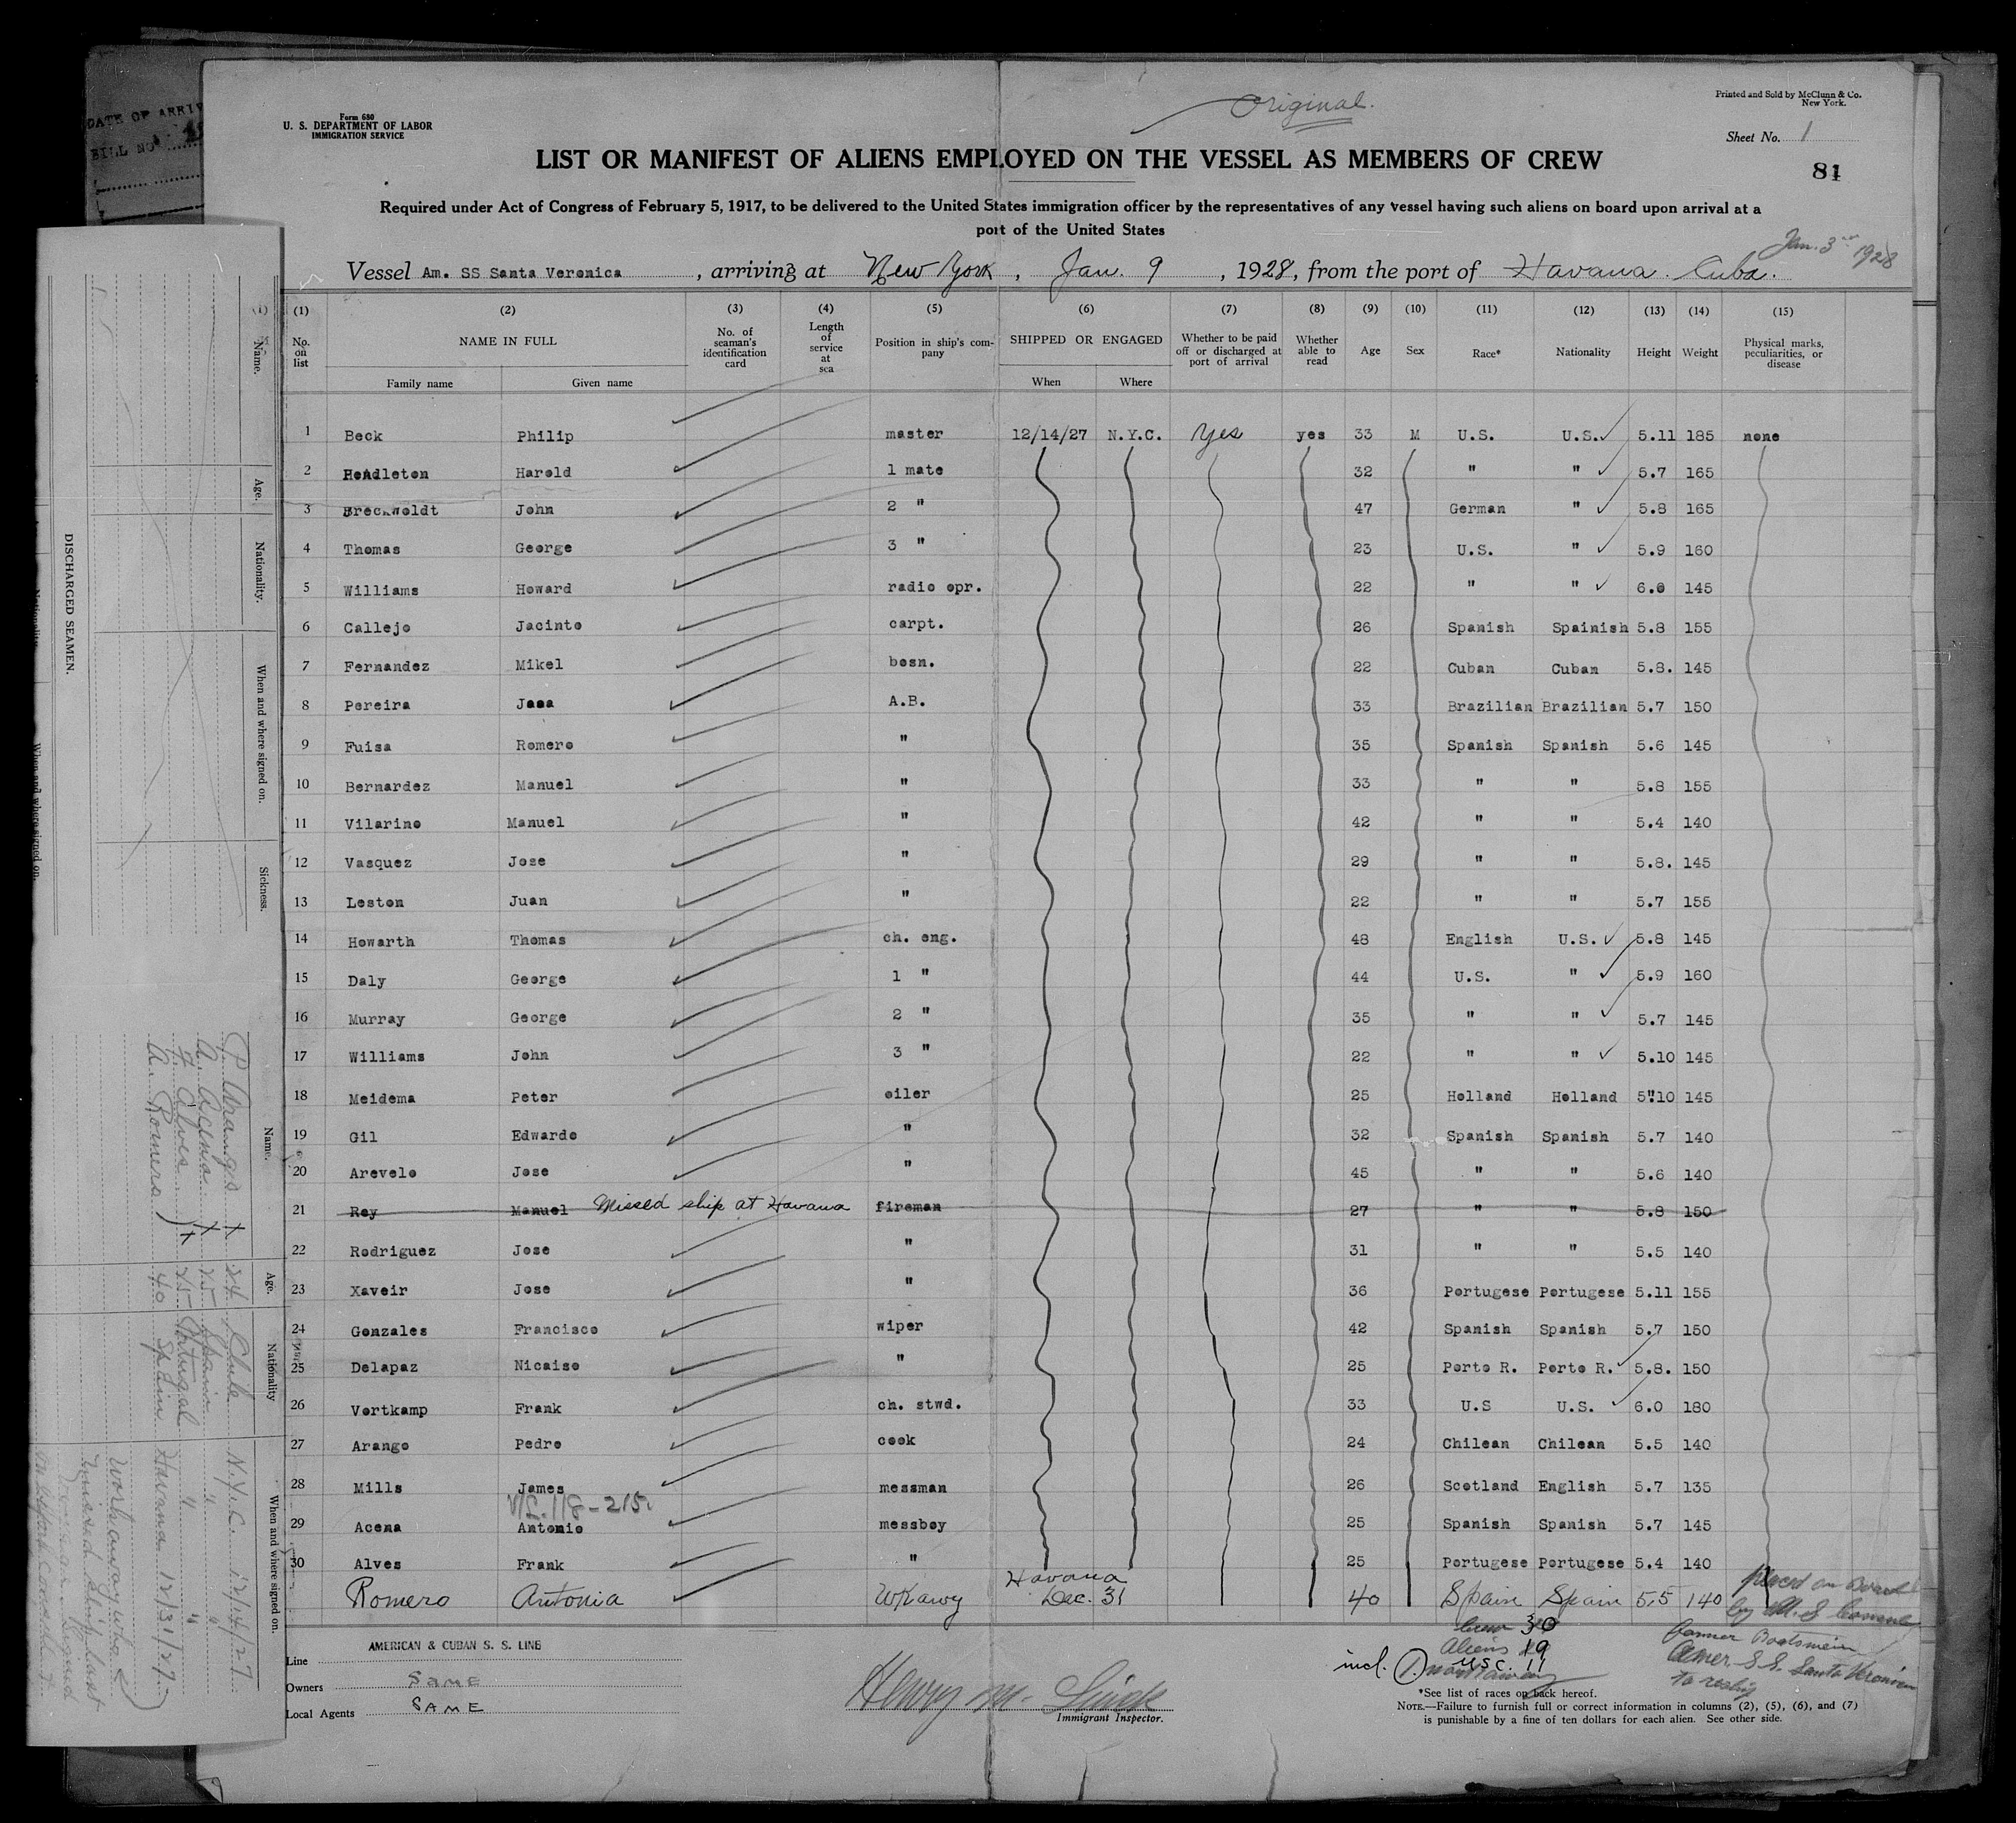 Original.
Printed and Sold by McClunn & Co.
New York.
Form 680
U. S. DEPARTMENT OF LABOR
IMMIGRATION SERVICE
Sheet No. 1
LIST OR MANIFEST OF ALIENS EMPLOYED ON THE VESSEL AS MEMBERS OF CREW
81
Required under Act of Congress of February 5, 1917, to be delivered to the United States immigration officer by the representatives of any vessel having such aliens on board upon arrival at a
port of the United States
Jan. 3 1928
Vessel Am. SS Santa Veronica, arriving at New York, Jan. 9, 1928, from the port of Havana. Cuba.
(1) (2) (3) (4) (5) (6) (7) (8) (9) (10) (11) (12) (13) (14) (15)
No. on list NAME IN FULL No. of seaman's identification card Length of service at sea Position in ship's company SHIPPED OR ENGAGED Whether to be paid off or discharged at port of arrival Whether able to read Age Sex Race* Nationality Height Weight Physical marks, peculiarities, or disease
Family name Given name When Where
1 Beck Philip master 12/14/27 N.Y.C. Yes yes 33 M U.S. U.S. 5.11 185 none
2 Pendleton Harold 1 mate 32 " " 5.7 165
3 Breckwoldt John 2 " 47 German " 5.8 165
4 Thomas George 3 " 23 U.S. " 5.9 160
5 Williams Howard radio opr. 22 " " 6.0 145
6 Callejo Jacinto carpt. 26 Spanish Spainish 5.8 155
7 Fernandez Mikel bosn. 22 Cuban Cuban 5.8. 145
8 Pereira A.B. 33 Brazilian Brazilian 5.7 150
9 Fuisa Romero " 35 Spanish Spanish 5.6 145
10 Bernardez Manuel " 33 " " 5.8 155
11 Vilarino Manuel " 42 " " 5.4 140
12 Vasquez Jose " 29 " " 5.8. 145
13 Leston Juan " 22 " " 5.7 155
14 Howarth Thomas ch. eng. 48 English U.S. 5.8 145
15 Daly George 1 " 44 U.S. " 5.9 160
16 Murray George 2 " 35 " " 5.7 145
17 Williams John 3 " 22 " " 5.10 145
18 Meidema Peter oiler 25 Holland Holland 5".10 145
19 Gil Edwardo " 32 Spanish Spanish 5.7 140
20 Arevelo Jose " 45 " " 5.6 140
21 Rey Manuel Missed ship at Havana fireman 27 " " 5.8 150
22 Rodriguez Jose " 31 " " 5.5 140
23 Xaveir Jose " 36 Portugese Portugese 5.11 155
24 Gonzales Francisco wiper 42 Spanish Spanish 5.7 150
25 Delapaz Nicaiso " 25 Porto R. Porto R. 5.8. 150
26 Vortkamp Frank ch. stwd. 33 U.S U.S. 6.0 180
27 Arango Pedro cook 24 Chilean Chilean 5.5 140
28 Mills James messman 26 Scotland English 5.7 135
29 Acena Antonio messboy 25 Spanish Spanish 5.7 145
30 Alves Frank " 25 Portugese Portugese 5.4 140
Romero Antonia Wkawy Havana Dec. 31 40 Spain Spain 5.5 140 placed on Board
by U.S Consul
former Boatswain
Amer. S.S. Santa Veronica
to reship
Crew 30
Aliens 19
U.S.C. 11
incl. 1
AMERICAN & CUBAN S. S. LINE
Line
Owners SAME
Local Agents SAME
Immigrant Inspector.
*See list of races on back hereof.
NOTE.—Failure to furnish full or correct information in columns (2), (5), (6), and (7)
is punishable by a fine of ten dollars for each alien. See other side.
DATE OF ARRIV
BILL NO
DISCHARGED SEAMEN.
Name. Age. Nationality. When and where signed on. Sickness.
Name. Age. Nationality When and where signed on.
P. Arango X 24 Chile N.Y.C. 12/14/27
A. Acena X 25 Spain " "
F. Alves X 25 Portugal " "
A. Romero 40 Spain Havana 12/31/27
Workaway who
missed ship last